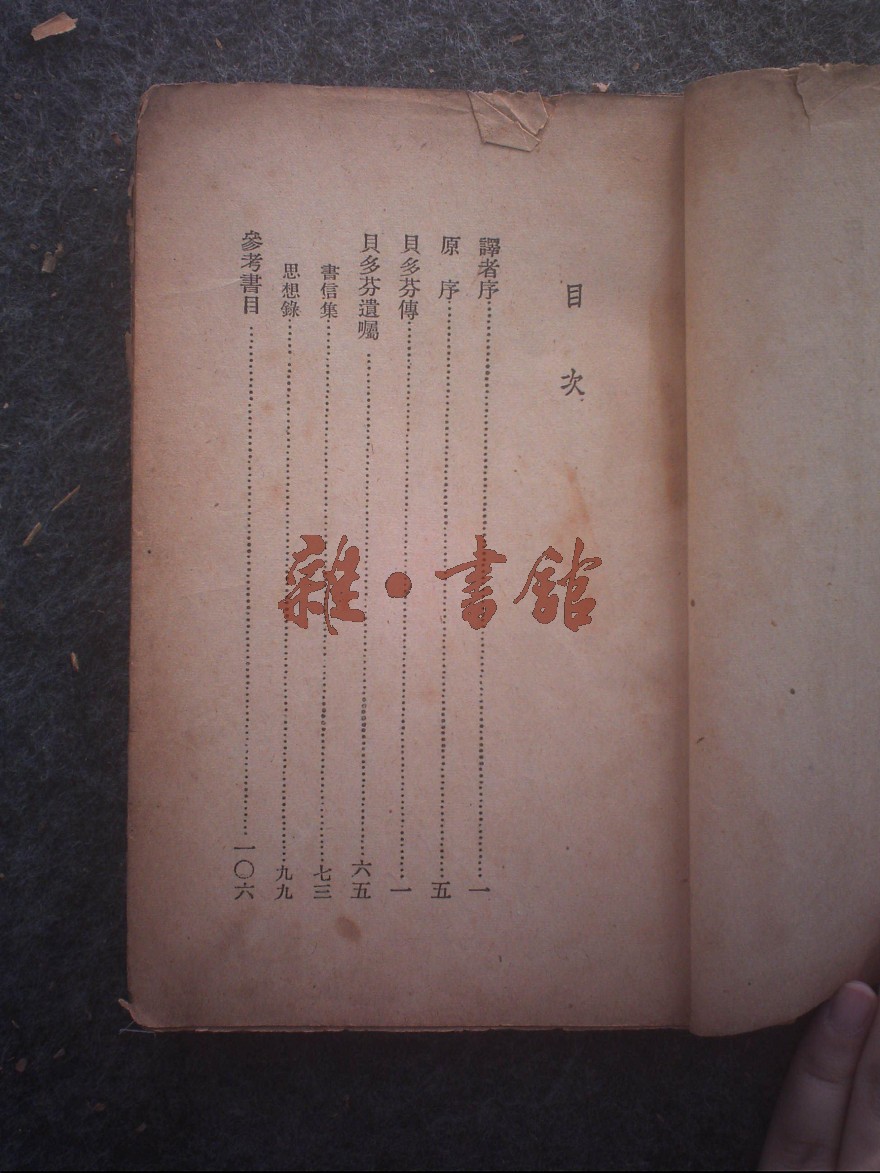 目次
譯者序……一
原序……五
貝多芬傳……一
貝多芬遺囑……六五
書信集……七三
思想錄……九九
參考書目……一〇六
雜·書館